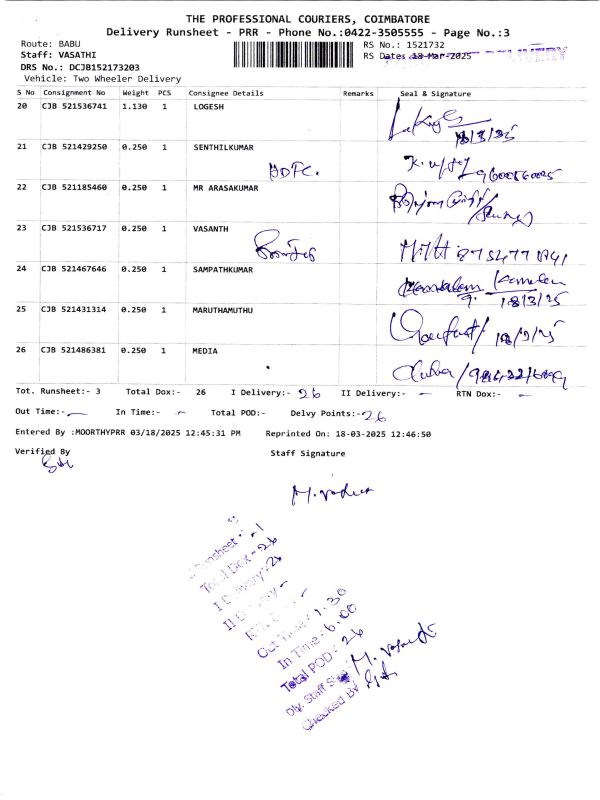 THE PROFESSIONAL COURIERS, COIMBATORE
Delivery Runsheet - PRR - Phone No.:0422-3505555 - Page No.:3
Route: BABU
RS No.: 1521732
Staff: VASATHI
RS Date: 18-Mar-2025 DELIVERY
DRS No.: DCJB152173203
Vehicle: Two Wheeler Delivery
S No Consignment No Weight PCS Consignee Details Remarks Seal & Signature
20 CJB 521536741 1.130 1 LOGESH
18/3/25
21 CJB 521429250 0.250 1 SENTHILKUMAR
HDFC.
22 CJB 521185460 0.250 1 MR ARASAKUMAR
23 CJB 521536717 0.250 1 VASANTH
24 CJB 521467646 0.250 1 SAMPATHKUMAR
18/3/25
25 CJB 521431314 0.250 1 MARUTHAMUTHU
26 CJB 521486381 0.250 1 MEDIA
Tot. Runsheet:- 3 Total Dox:- 26 I Delivery:- 26 II Delivery:- - RTN Dox:- -
Out Time:- - In Time:- - Total POD:- Delvy Points:- 26
Entered By :MOORTHYPRR 03/18/2025 12:45:31 PM Reprinted On: 18-03-2025 12:46:50
Verified By
Staff Signature
Runsheet - 1
Total Dox - 26
I Delivery - 26
II Delivery -
Out Time : 1.30
In Time : 6.00
Total POD : 26
Dly. Staff
Checked By